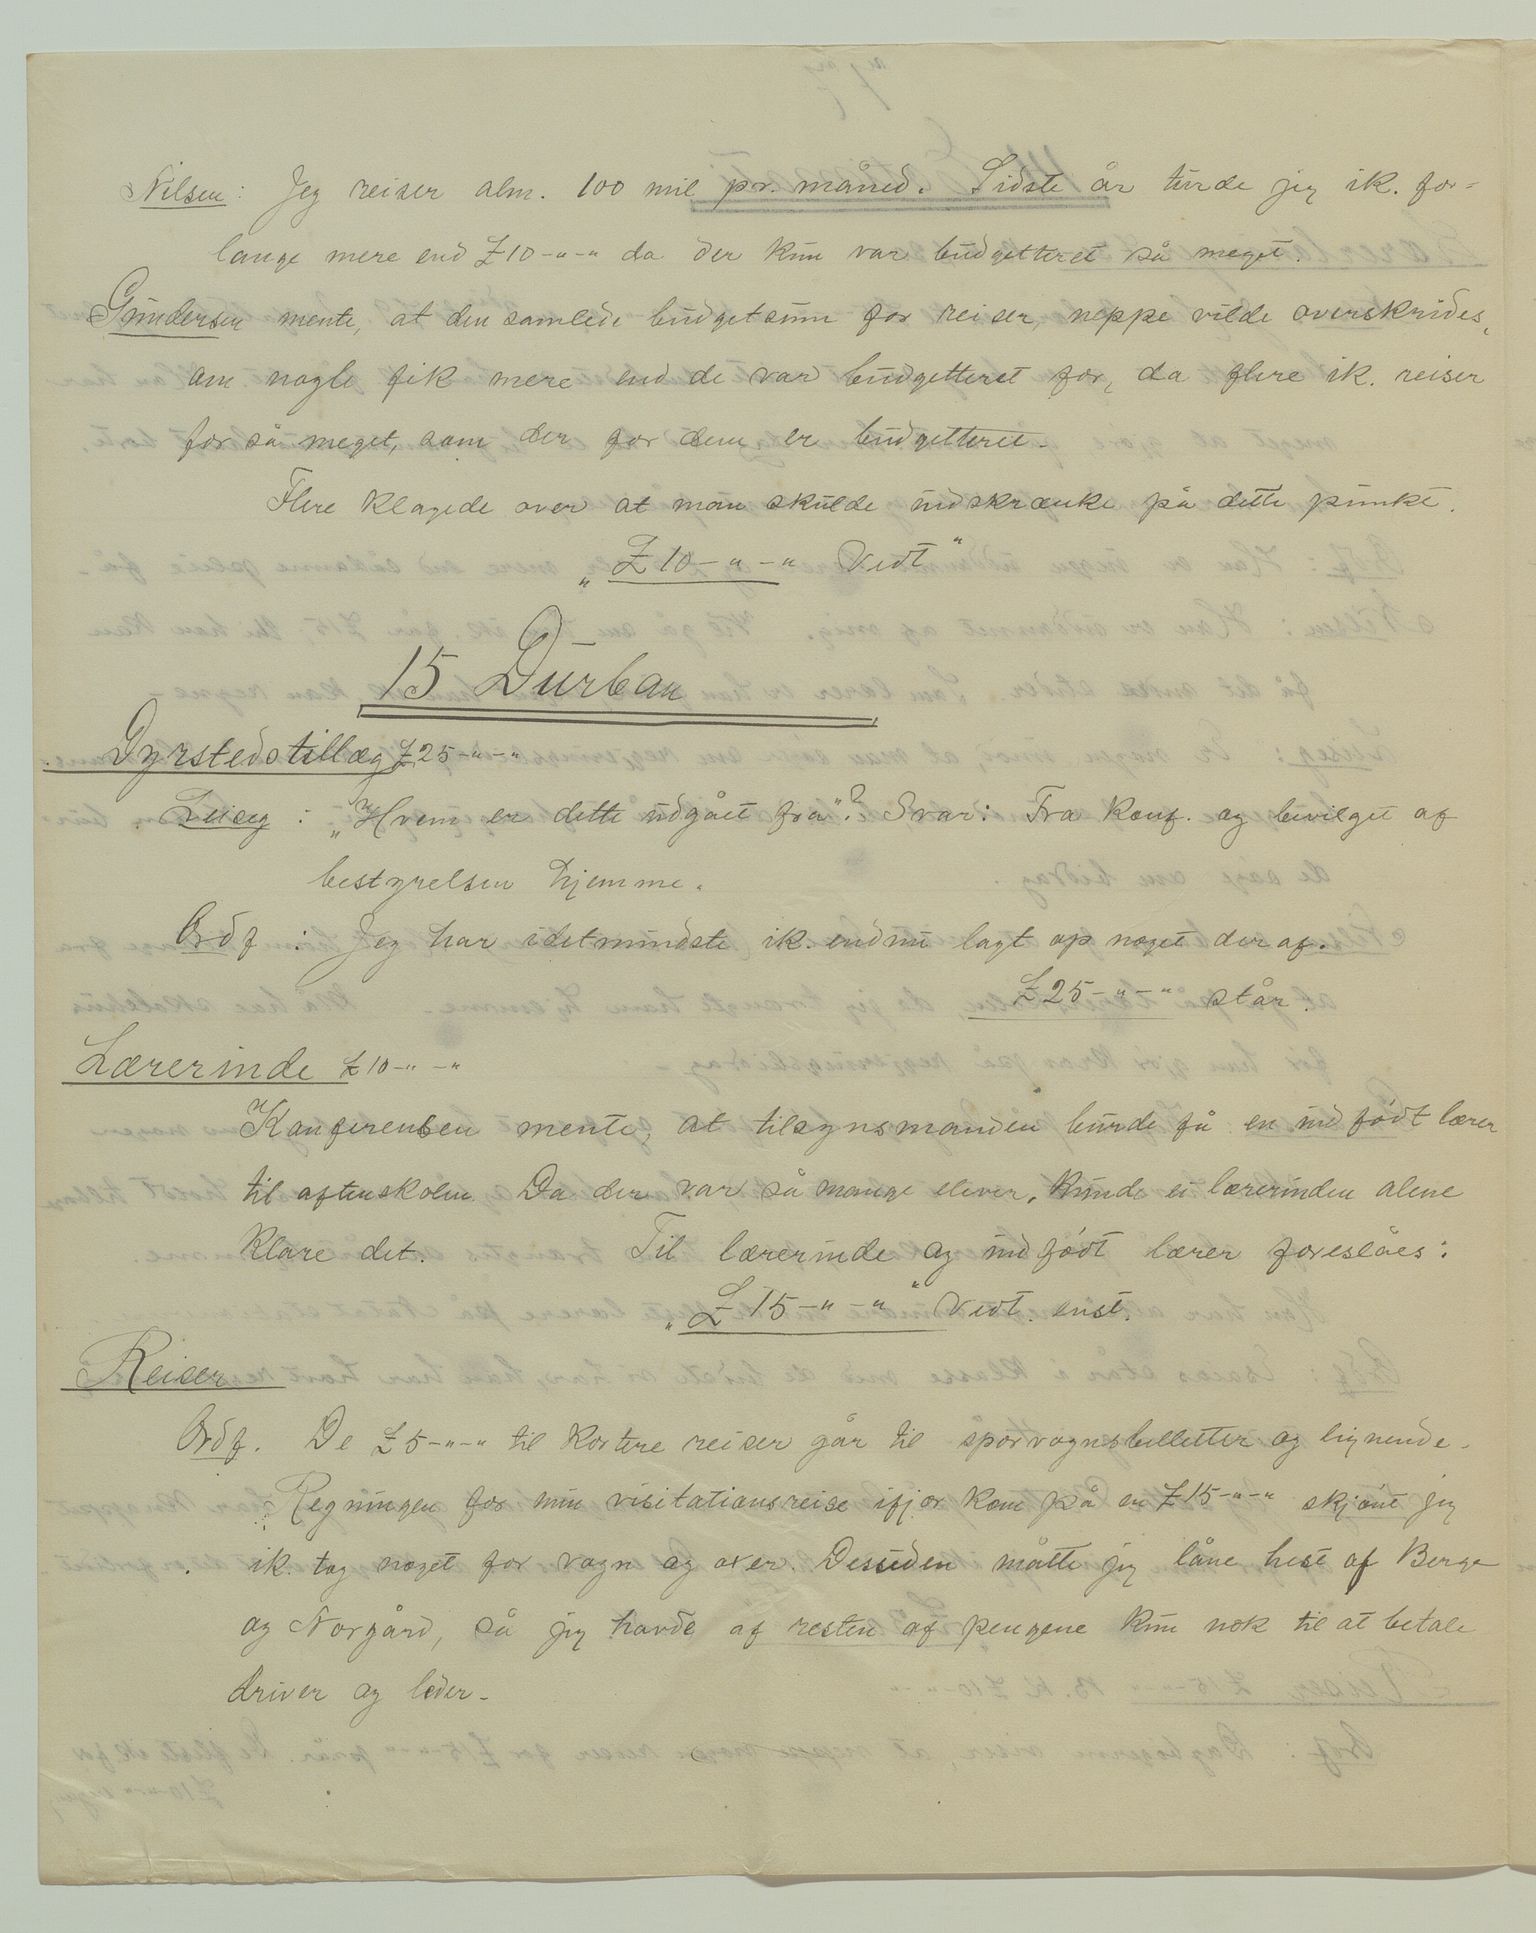 Nilsen: Jeg reiser alm. 100 mil pr. måned. Sidste år turde jeg ik. for-
lange mere end £10-"-" da der kun var budgetteret så meget.
Gundersen mente, at den samlede budgetsum for reiser, neppe vilde overskrides,
om nogle fik mere end de var budgetteret for, da flere ik. reiser
for så meget, som der for dem er budgetteret.
Flere klagede over at man skulde indskrænke på dette punkt.
„£10-"-" Vedt"
15 Durban
Dyrstedstillæg £25-"-"
Leiseg: „Hvem er dette udgået fra"? Svar: Fra Konf. og bevilget af
bestyrelsen hjemme.
Ordf: Jeg har idetmindste ik. endnu lagt op noget deraf.
£25-"-" står.
Lærerinde £10-"-"
Konferensen mente, at tilsynsmanden burde få en indfødt lærer
til aftenskolen. Da der var så mange elever, kunde ei lærerinden alene
klare det. Til lærerinde og indfødt lærer foreslåes:
„£15-"-"" Vedt. enst.
Reiser
Ordf. De £5-"-" til kortere reiser går til sporvognsbilletter og lignende.
Regningen for min visitationsreise ifjor kom på en £15-"-" skjønt jeg
ik. tog noget for vogn og oxer. Desuden måtte jeg låne hest af Berge
og Norgård, så jeg havde af resten af pengene kun nok til at betale
driver og leder.